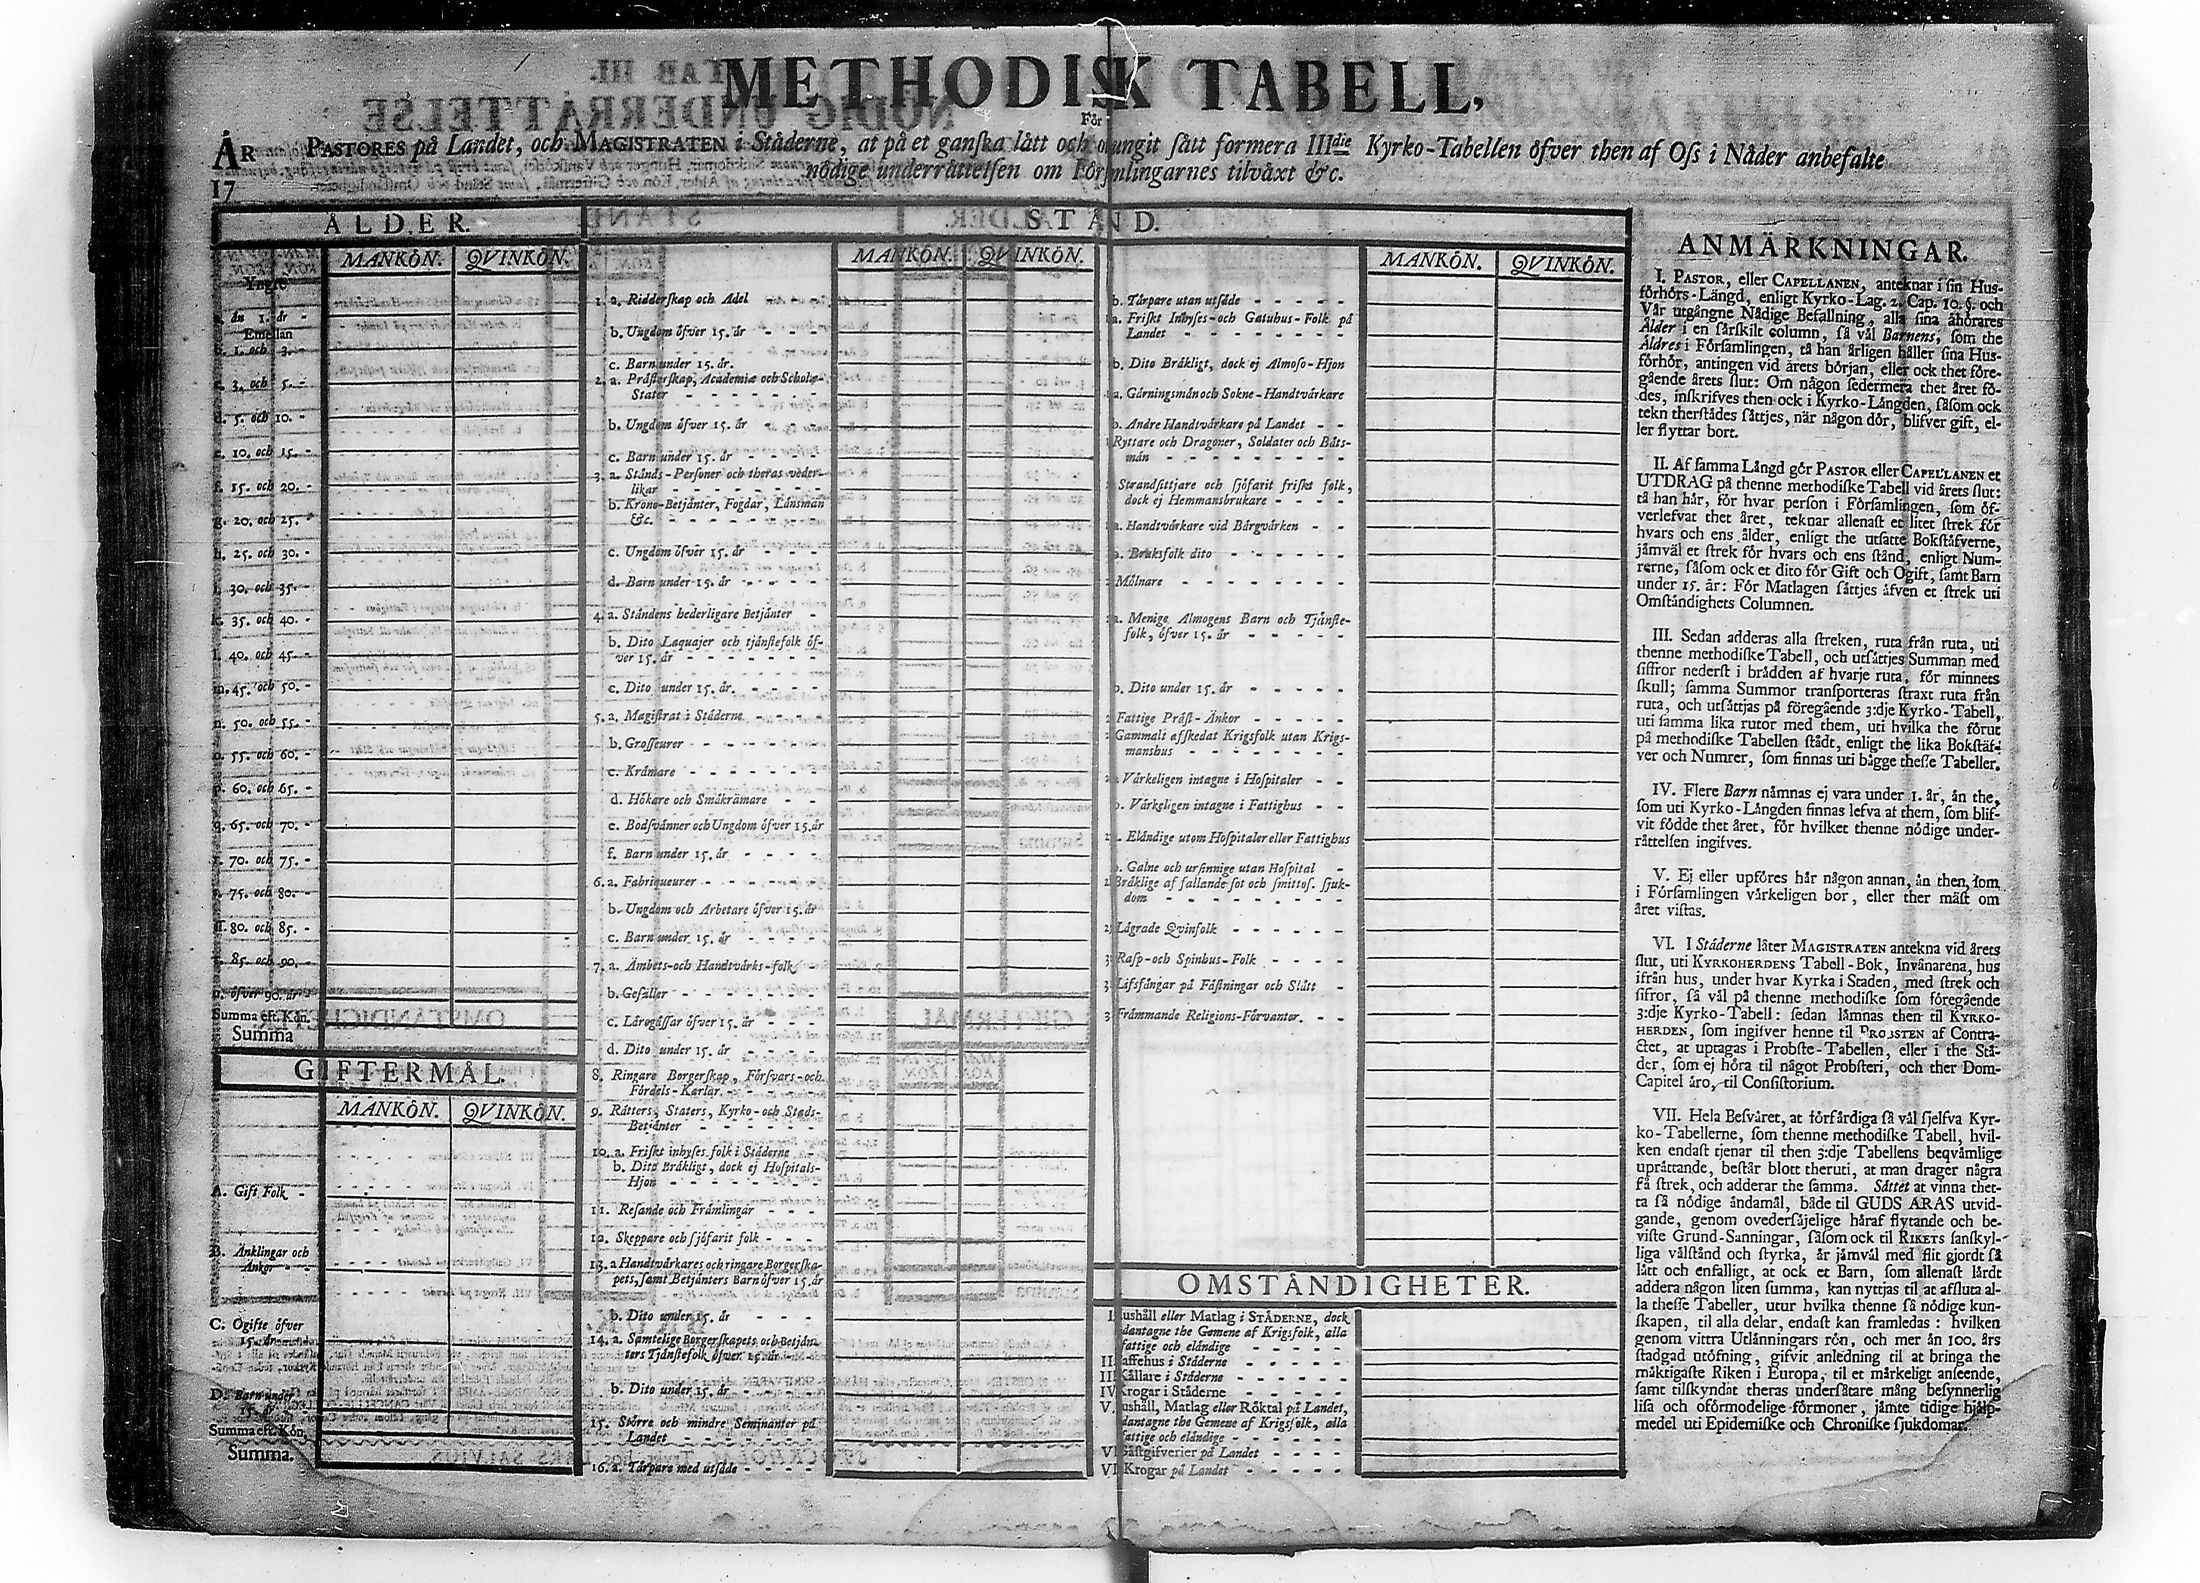 METHODISK TABELL,
För
ÅR
17
PASTORES på Landet, och MAGISTRATEN i Ståderne, at på et ganſka lått och otungit ſått formera IIIdie Kyrko-Tabellen öfver then af Oſs i Nåder anbefalte
nödige underråttelſen om Förſamlingarnes tilvåxt &c.
ÅLDER.
MANKÖN. QVINKÖN.
Yngre
a. ån 1. år -
Emellan
b. 1. och 3. -
c. 3. och 5. -
d. 5. och 10. -
e. 10. och 15. -
f. 15. och 20. -
g. 20. och 25. -
h. 25. och 30. -
i. 30. och 35. -
k. 35. och 40. -
l. 40. och 45. -
m. 45. och 50. -
n. 50. och 55. -
o. 55. och 60. -
p. 60. och 65. -
q. 65. och 70. -
r. 70. och 75. -
s. 75. och 80. -
ſſ. 80. och 85. -
t. 85. och 90. -
u. öfver 90. år -
Summa eft. Kön.
Summa
GIFTERMÅL.
MANKÖN. QVINKÖN.
A. Gift Folk -
B. Änklingar och
Ånkor - -
C. Ogifte öfver
15. år - -
D. Barn under
15. år
Summa eft. Kön.
Summa.
STÅND.
MANKÖN. QVINKÖN.
1. a. Ridderſkap och Adel
b. Ungdom öfver 15. år - - -
c. Barn under 15. år.
2. a. Pråſterſkap, Academiæ och Scholæ-
Stater - - - - - - -
b. Ungdom öfver 15. år - - -
c. Barn under 15. år - - - -
3. a. Stånds-Perſoner och theras veder-
likar - - - - - - - -
b. Krono-Betjånter, Fogdar, Länsmån
&c. - - - - - - - -
c. Ungdom öfver 15. år - - -
d. Barn under 15. år - - - -
4. a. Ståndens hederligare Betjånter -
b. Dito Laquajer och tjånſtefolk öf-
ver 15. år - - - - - - -
c. Dito under 15. år. - - - -
5. a. Magiſtrat i Ståderne - - - -
b. Groſſeurer - - - - - -
c. Kråmare - - - - - - -
d. Hökare och Småkråmare - -
e. Bodſvånner och Ungdom öfver 15. år
f. Barn under 15. år - - - -
6. a. Fabriqueurer - - - - - -
b. Ungdom och Arbetare öfver 15. år
c. Barn under 15. år - - - -
7. a. Åmbets-och Handtvårks-folk -
b. Geſåller - - - - - - -
c. Lårogåſſar öfver 15. år - - -
d. Dito under 15. år - - - -
8. Ringare Borgerſkap, Förſvars-och
Fördels-Karlar. - - - - -
9. Råtters, Staters, Kyrko-och Stads-
Betjånter - - - - - -
10. a. Friſkt inhyſes folk i Ståderne -
b. Dito Bråkligt, dock ej Hoſpitals-
Hjon - - - - - - - -
11. Reſande och Fråmlingar - - -
12. Skeppare och ſjöfarit folk - - -
13. a Handtvårkares och ringare Borgerſka-
pets, ſamt Betjånters Barn öfver 15. år
b. Dito under 15. år - - - -
14. a. Samtelige Borgerſkapets och Betjån-
ters Tjånſtefolk öfver 15. år - -
b. Dito under 15. år - - - -
15. Större och mindre Seminanter på
Landet - - - - - - - -
16. a. Tårpare med utſåde - - - -
MANKÖN. QVINKÖN.
b. Tårpare utan utſåde - - - - -
a. Friſkt Inhyſes-och Gatuhus-Folk på
Landet - - - - - - - -
b. Dito Bråkligt, dock ej Almoſo-Hjon
a. Gårningsmån och Sokne-Handtvårkare
b. Andre Handtvårkare på Landet - -
Ryttare och Dragoner, Soldater och Båts-
mån - - - - - - - - -
Strandſittjare och ſjöfarit friſkt folk,
dock ej Hemmansbrukare - - - -
a. Handtvårkare vid Bårgvårken - -
b. Bruksfolk dito - - - - - -
Mölnare - - - - - - - -
a. Menige Almogens Barn och Tjånſte-
folk, öfver 15. år - - - - -
b. Dito under 15. år - - - - -
Fattige Pråſt-Änkor - - - - -
Gammalt afſkedat Krigsfolk utan Krigs-
manshus - - - - - - - -
a. Vårkeligen intagne i Hoſpitaler - -
b. Vårkeligen intagne i Fattighus - -
a. Elåndige utom Hoſpitaler eller Fattighus
b. Galne och urſinnige utan Hoſpital -
Bråklige af fallande ſot och ſmittoſ. ſjuk-
dom - - - - - - - - -
Lågrade Qvinfolk - - - - -
Raſp-och Spinhus-Folk - - - -
Lifsfångar på Fåſtningar och Slått -
Fråmmande Religions-Förvanter. - -
OMSTÅNDIGHETER.
Huſhåll eller Matlag i STÅDERNE, dock
undantagne the Gemene af Krigsfolk, alla
fattige och elåndige - - - - -
II. Caffehus i Ståderne - - - - -
III. Kållare i Ståderne - - - - -
IV. Krogar i Ståderne - - - - -
V. Huſhåll, Matlag eller Röktal på Landet,
undantagne the Gemene af Krigsfolk, alla
fattige och elåndige - - - - -
Gåſtgifverier på Landet - - - -
Krogar på Landet - - - - -
ANMÄRKNINGAR.
I. PASTOR, eller CAPELLANEN, anteknar i ſin Hus-
förhörs-Långd, enligt Kyrko-Lag. 2. Cap. 10. §. och
Vår utgångne Nådige Befallning, alla ſina åhörares
Ålder i en ſårſkilt column, ſå vål Barnens, ſom the
Åldres i Förſamlingen, tå han årligen håller ſina Hus-
förhör, antingen vid årets början, eller ock thet före-
gående årets ſlut: Om någon ſedermera thet året fö-
des, inſkrifves then ock i Kyrko-Långden, ſåſom ock
tekn therſtådes ſåttjes, når någon dör, blifver gift, el-
ler flyttar bort.
II. Af ſamma Långd gör PASTOR eller CAPELLANEN et
UTDRAG på thenne methodiſke Tabell vid årets ſlut:
tå han hår, för hvar perſon i Förſamlingen, ſom öf-
verlefvat thet året, teknar allenaſt et litet ſtrek för
hvars och ens ålder, enligt the utſatte Bokſtåfverne,
jåmvål et ſtrek för hvars och ens ſtånd, enligt Num-
rerne, ſåſom ock et dito för Gift och Ogift, ſamt Barn
under 15. år: För Matlagen ſåttjes åfven et ſtrek uti
Omſtåndighets Columnen.
III. Sedan adderas alla ſtreken, ruta från ruta, uti
thenne methodiſke Tabell, och utſåttjes Summan med
ſiffror nederſt i brådden af hvarje ruta, för minnets
ſkull; ſamma Summor transporteras ſtraxt ruta från
ruta, och utſåttjas på föregående 3:dje Kyrko-Tabell,
uti ſamma lika rutor med them, uti hvilka the förut
på methodiſke Tabellen ſtådt, enligt the lika Bokſtåf-
ver och Numrer, ſom finnas uti bågge theſſe Tabeller.
IV. Flere Barn nåmnas ej vara under 1. år, ån the,
ſom uti Kyrko-Långden finnas lefva at them, ſom blif-
vit födde thet året, för hvilket thenne nödige under-
råttelſen ingifves.
V. Ej eller upföres hår någon annan, ån then, ſom
i Förſamlingen vårkeligen bor, eller ther måſt om
året viſtas.
VI. I Ståderne låter MAGISTRATEN antekna vid årets
ſlut, uti KYRKOHERDENS Tabell-Bok, Invånarena, hus
ifrån hus, under hvar Kyrka i Staden, med ſtrek och
ſifror, ſå vål på thenne methodiſke ſom föregående
3:dje Kyrko-Tabell: ſedan låmnas then til KYRKO-
HERDEN, ſom ingifver henne til PROBSTEN af Contra-
ctet, at uptagas i Probſte-Tabellen, eller i the Stå-
der, ſom ej höra til något Probſteri, och ther Dom-
Capitel åro, til Conſiſtorium.
VII. Hela Beſvåret, at förfårdiga ſå vål ſjelfva Kyr-
ko-Tabellerne, ſom thenne methodiſke Tabell, hvil-
ken endaſt tjenar til then 3:dje Tabellens beqvåmlige
upråttande, beſtår blott theruti, at man drager några
få ſtrek, och adderar the ſamma. Såttet at vinna thet-
ta ſå nödige åndamål, både til GUDS ÅRAS utvid-
gande, genom ovederſåjelige håraf flytande och be-
viſte Grund-Sanningar, ſåſom ock til RIKETS ſanſkyl-
liga vålſtånd och ſtyrka, år jåmvål med flit gjordt ſå
lått och enfalligt, at ock et Barn, ſom allenaſt lårdt
addera någon liten ſumma, kan nyttjas til at afſluta al-
la theſſe Tabeller, utur hvilka thenne ſå nödige kun-
ſkapen, til alla delar, endaſt kan framledas: hvilken
genom vittra Utlånningars rön, och mer ån 100. års
ſtadgad utöfning, gifvit anledning til at bringa the
måktigaſte Riken i Europa, til et mårkeligt anſeende,
ſamt tilſkyndat theras underſåtare mång beſynnerlig
liſa och oförmodelige förmoner, jåmte tidige hjålp-
medel uti Epidemiſke och Chroniſke ſjukdomar.